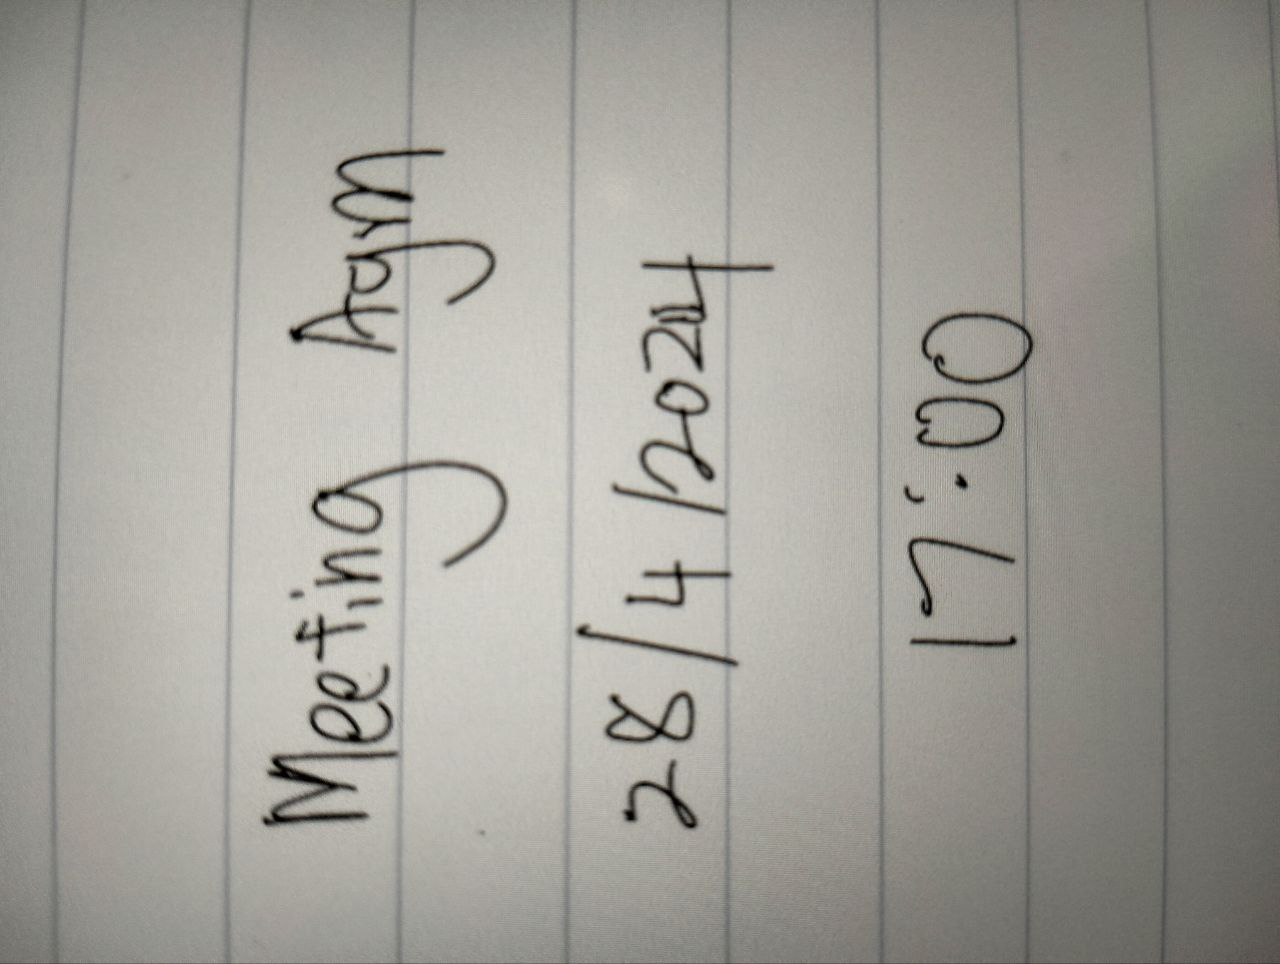 Meeting Agm
28/4/2024
17:00